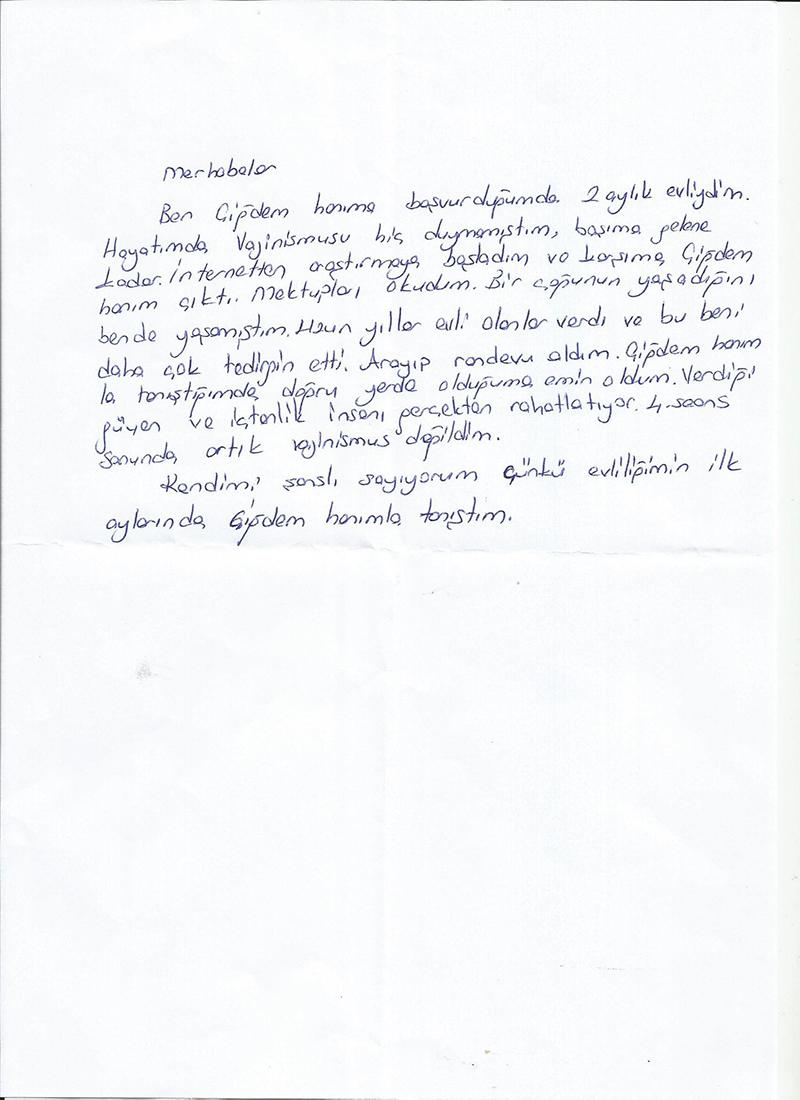 Merhabalar
Ben Çiğdem hanıma başvurduğumda 2 aylık evliydim.
Hayatımda Vajinismusu hiç duymamıştım, başıma gelene
kadar. İnternetten araştırmaya başladım ve karşıma Çiğdem
hanım çıktı. Mektupları okudum. Bir çoğunun yaşadığını
bende yaşamıştım. Uzun yıllar evli olanlar vardı ve bu beni
daha çok tedirgin etti. Arayıp randevu aldım. Çiğdem hanım
la tanıştığımda doğru yerde olduğuma emin oldum. Verdiği
güven ve içtenlik insanı gerçekten rahatlatıyor. 4. seans
sonunda artık vajinismus değildim.
Kendimi şanslı sayıyorum çünkü evliliğimin ilk
aylarında Çiğdem hanımla tanıştım.